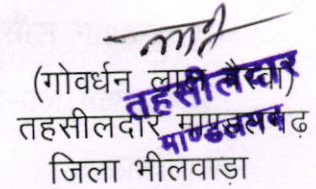 (गोवर्धन लाल बैरवा)
तहसीलदार माण्डलगढ़
जिला भीलवाड़ा
तहसीलदार
माण्डलगढ़